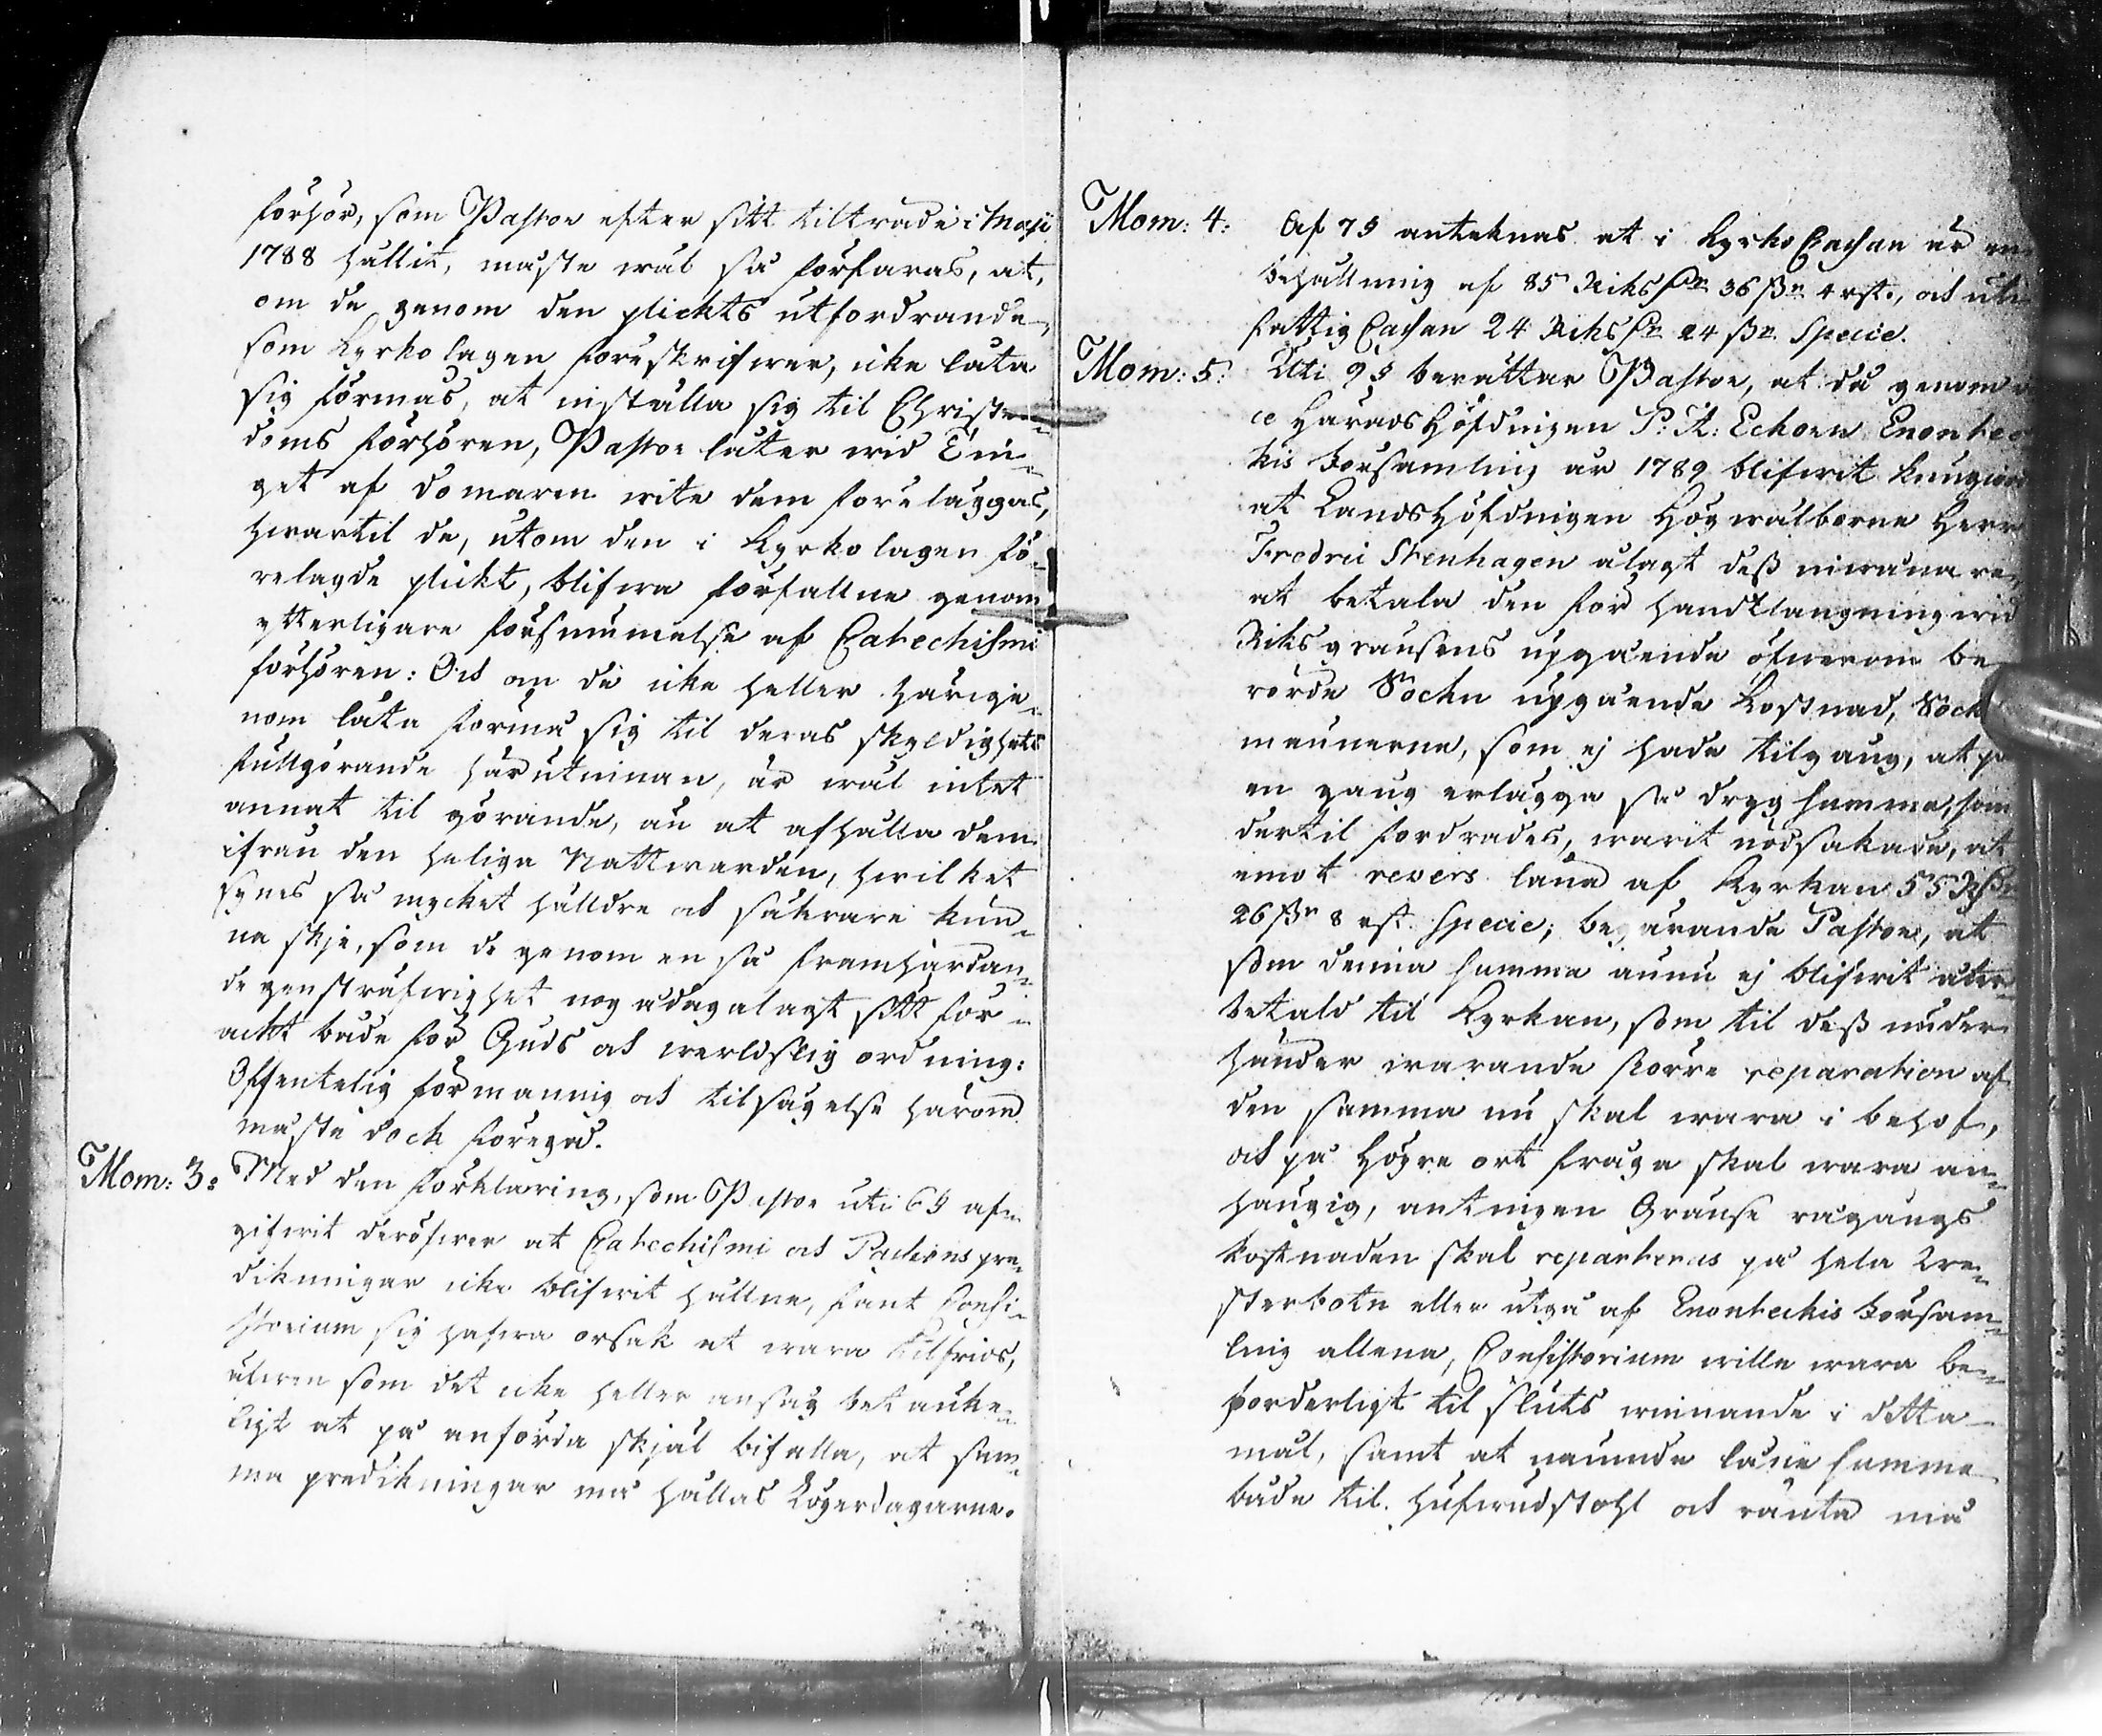 förhör, som Pastor efter sitt tilträde i Maji
1788 hållit, måste wäl så förfaras, at,
om de genom den plickts utfordrande,
som Kyrkolagen föreskrifwer, icke låta
sig förmås, at inställa sig til Christen-
doms förhören, Pastor låter wid Tin-
get af domaren wite dem föreläggas,
hwartil de, utom den i Kyrkolagen fö-
relagde plickt, blifwa förfallne genom
ytterligare försummelse af Catechismi
förhören: Och om de icke heller härige-
nom låta förmå sig til deras skyldighets
fullgörande härutinnan, är wäl intet
annat til görande, än at afhålla dem
ifrån den heliga Nattwarden, hwilket
synes så mycket hälldre och säkrare kun-
na skje, som de genom en så framhärdan-
de gensträfwighet nog ådagalagt sitt för-
ackt både för Guds och werldslig ordning:
Offentelig förmaning och tilsägelse härom
måste dock föregå.
Mom: 3: Med den förklaring, som Pastor uti 6 § af-
gifwit deröfwer at Catechismi och Passions pre-
dikningar icke blifwit hållne, fant Consi-
storium sig hafwa orsak at wara tilfrids,
äfwen som det icke heller ansåg betänke-
ligt at på anförda skjäl bifalla, at sam-
ma predikningar må hållas Lögerdagarne.
Mom: 4: Af 7 § anteknas at i Kyrko Cassan är en
behållning af 85 Riksdr 36 ßr 4 rst., och uti
fattig Cassan 24 Riksdr 24 ßr Specie.
Mom: 5: Uti 9 § berättar Pastor, at då genom
ce Härads Höfdingen P: A: Ekorn Enonte
kis Församling år 1789 blifwit kungjord
at Lands Höfdingen Högwälborne Herr
Fredric Stenhagen ålagt dess inwånare
at betala den för handtlangning wid
Riksgränsens upgående öfwer om be-
rörde Sochn upgående kostnad, Sock
männerne, som ej hade tilgång, at på
en gång erlägga så dryg summa, som
dertil fordrades, warit nödsakade, at
emot revers låna af Kyrkan 55 Rdr
26 ßr 8 rst. Specie; begärande Pastor, at
som denna summa ännu ej blifwit åter-
betald til Kyrkan, som til dess under
händer warande större reparation af
den samma nu skal wara i behof,
och på högre ort fråga skal wara an-
hängig, antingen Gränse rågångs
kostnaden skal reparteras på hela We-
sterbotn eller utgå af Enontekis Försam-
ling allena, Consistorium wille wara be-
forderligt til sluts winnande i detta
mål, samt at nämnde låne summa
både til hufwudstohl och ränta må